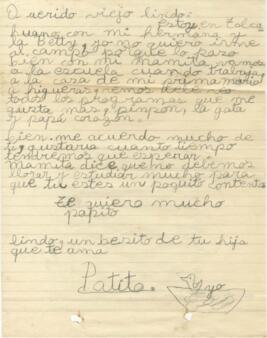 Querido viejo lindo:
Estoy en Talca
huano con mi hermana y
la Betty, yo no quiero irme
al campo porque lo paso
bien con mi mamita vamos
a la escuela cuando trabaja
a la casa de mi prima mario
a higueras, vemos tele
todos los programas que me
gusta más, pinpon, la gata
y papá corazón.
bien me acuerdo mucho de
ti, gustaria cuanto tiempo
tendremos que esperar y
mamita dice que no debemos
llorar y estudiar mucho para
que tu estes un poquito contento
te quiero mucho
papito
lindo, un besito de tu hija
que te ama
Patita. yo